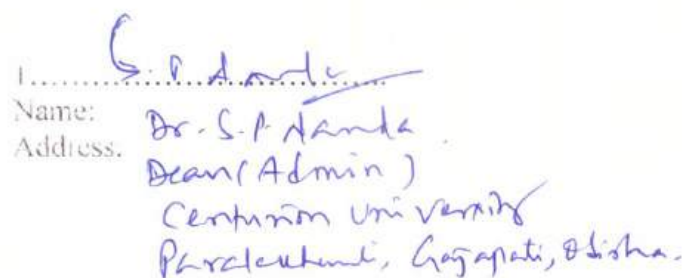 1. S. P. Nanda
Name: Dr. S. P. Nanda
Address. Dean (Admin)
Centurion University
Paralakhemundi, Gajapati, Odisha.